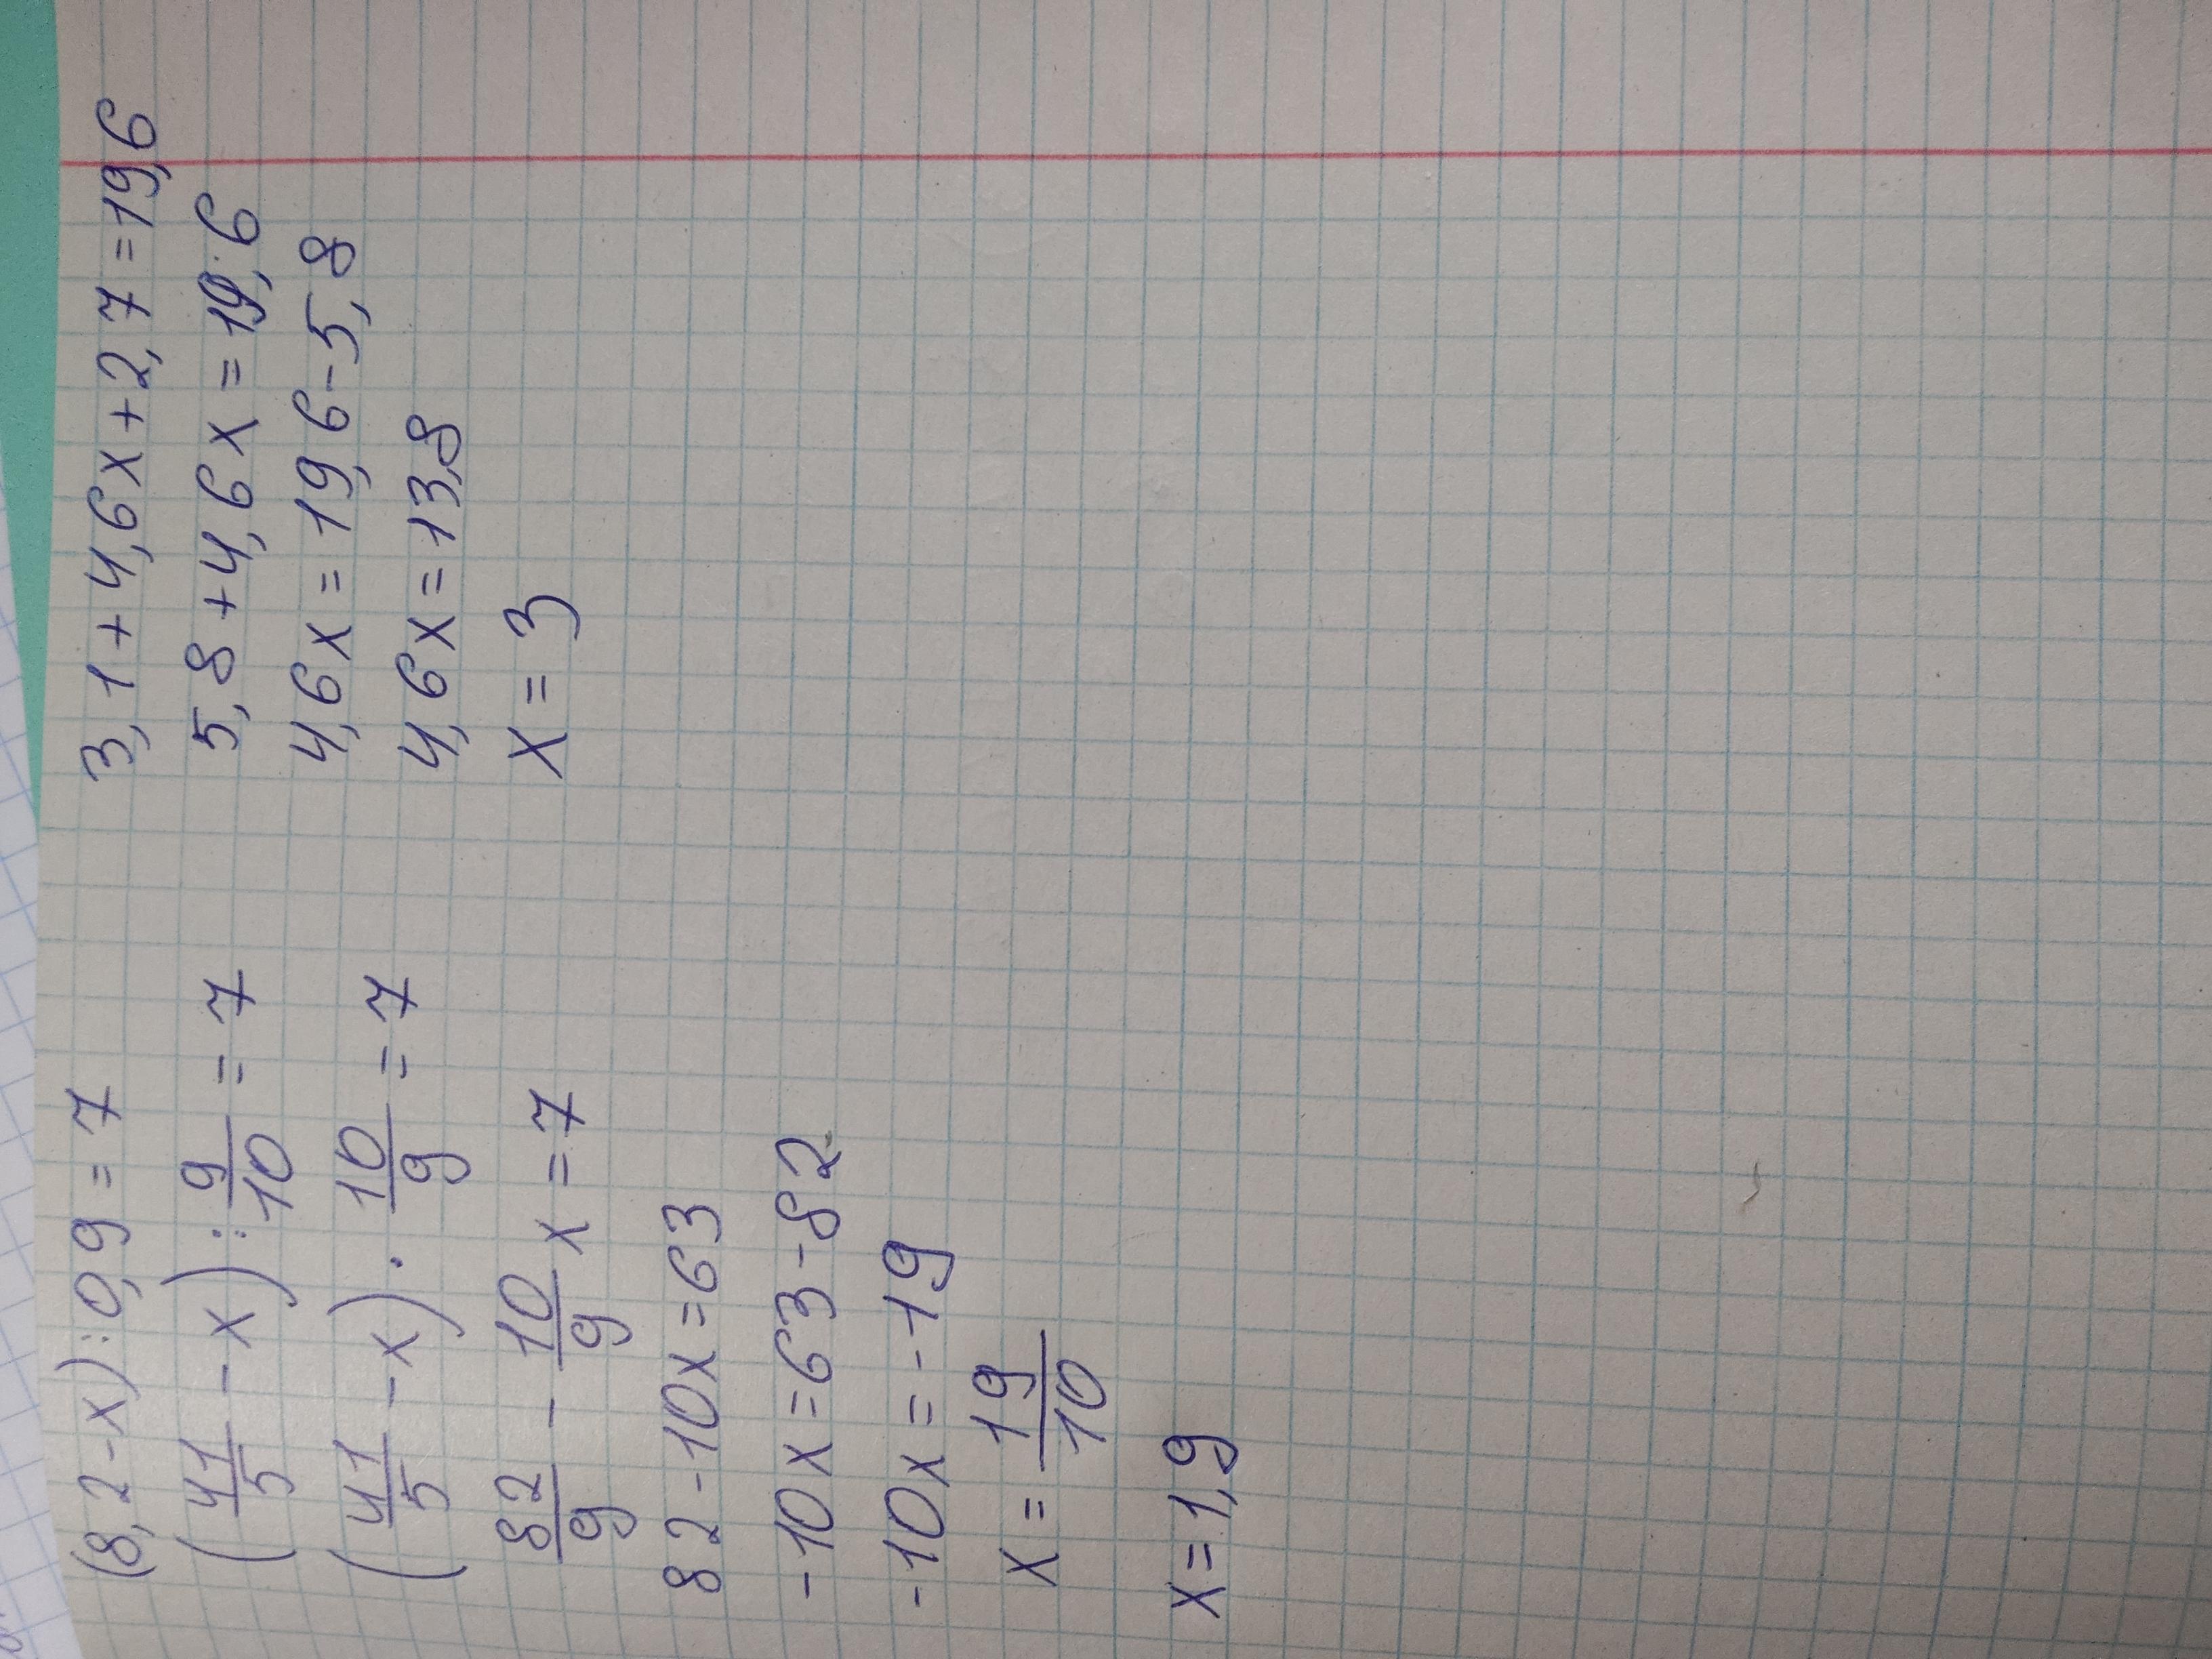 (8,2-x):0,9=7
(41/5 - x) : 9/10 = 7
(41/5 - x) · 10/9 = 7
82/9 - 10/9 x = 7
82-10x=63
-10x=63-82
-10x=-19
x = 19/10
x=1,9
3,1+4,6x+2,7=19,6
5,8+4,6x=19,6
4,6x=19,6-5,8
4,6x=13,8
x=3